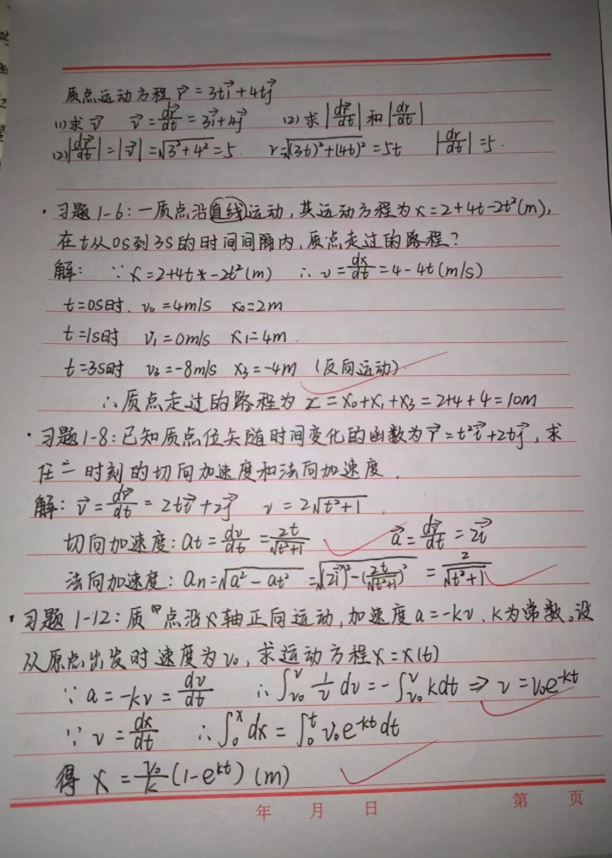 质点运动方程 r⃗ = 3ti⃗+4tj⃗
(1)求v⃗ v⃗ = dr⃗/dt = 3i⃗+4j⃗ (2)求|dr⃗/dt|和|dr/dt|
(2)|dr⃗/dt| = |v⃗| = √(3²+4²) = 5. r = √((3t)²+(4t)²) = 5t |dr/dt| = 5.
·习题1-6:一质点沿直线运动,其运动方程为x=2+4t-2t²(m),
在t从0s到3s的时间间隔内,质点走过的路程?
解: ∵ x=2+4t-2t²(m) ∴ v = dx/dt = 4-4t(m/s)
t=0s时. v₀=4m/s x₀=2m
t=1s时 v₁=0m/s x₁=4m
t=3s时 v₃=-8m/s x₃=-4m (反向运动)
∴质点走过的路程为 x = x₀+x₁+x₃ = 2+4+4 = 10m
·习题1-8:已知质点位矢随时间变化的函数为r⃗=t²i⃗+2tj⃗,求
任一时刻的切向加速度和法向加速度.
解: v⃗ = dr⃗/dt = 2ti⃗+2j⃗ v = 2√(t²+1).
切向加速度: at = dv/dt = 2t/√(t²+1) a⃗ = dv⃗/dt = 2i⃗
法向加速度: an = √(a²-at²) = √((2i⃗)²-(2t/√(t²+1))²) = 2/√(t²+1)
·习题1-12:质点沿x轴正向运动,加速度a=-kv.k为常数。设
从原点出发时速度为v₀,求运动方程x=x(t)
∵ a = -kv = dv/dt ∴∫_{v₀}^{v} 1/v dv = -∫_{v₀}^{v} kdt ⇒ v = v₀e^{-kt}
∵ v = dx/dt ∴∫_{0}^{x} dx = ∫_{0}^{t} v₀e^{-kt}dt
得 x = v₀/k (1-e^{kt}) (m)
年 月 日 第 页